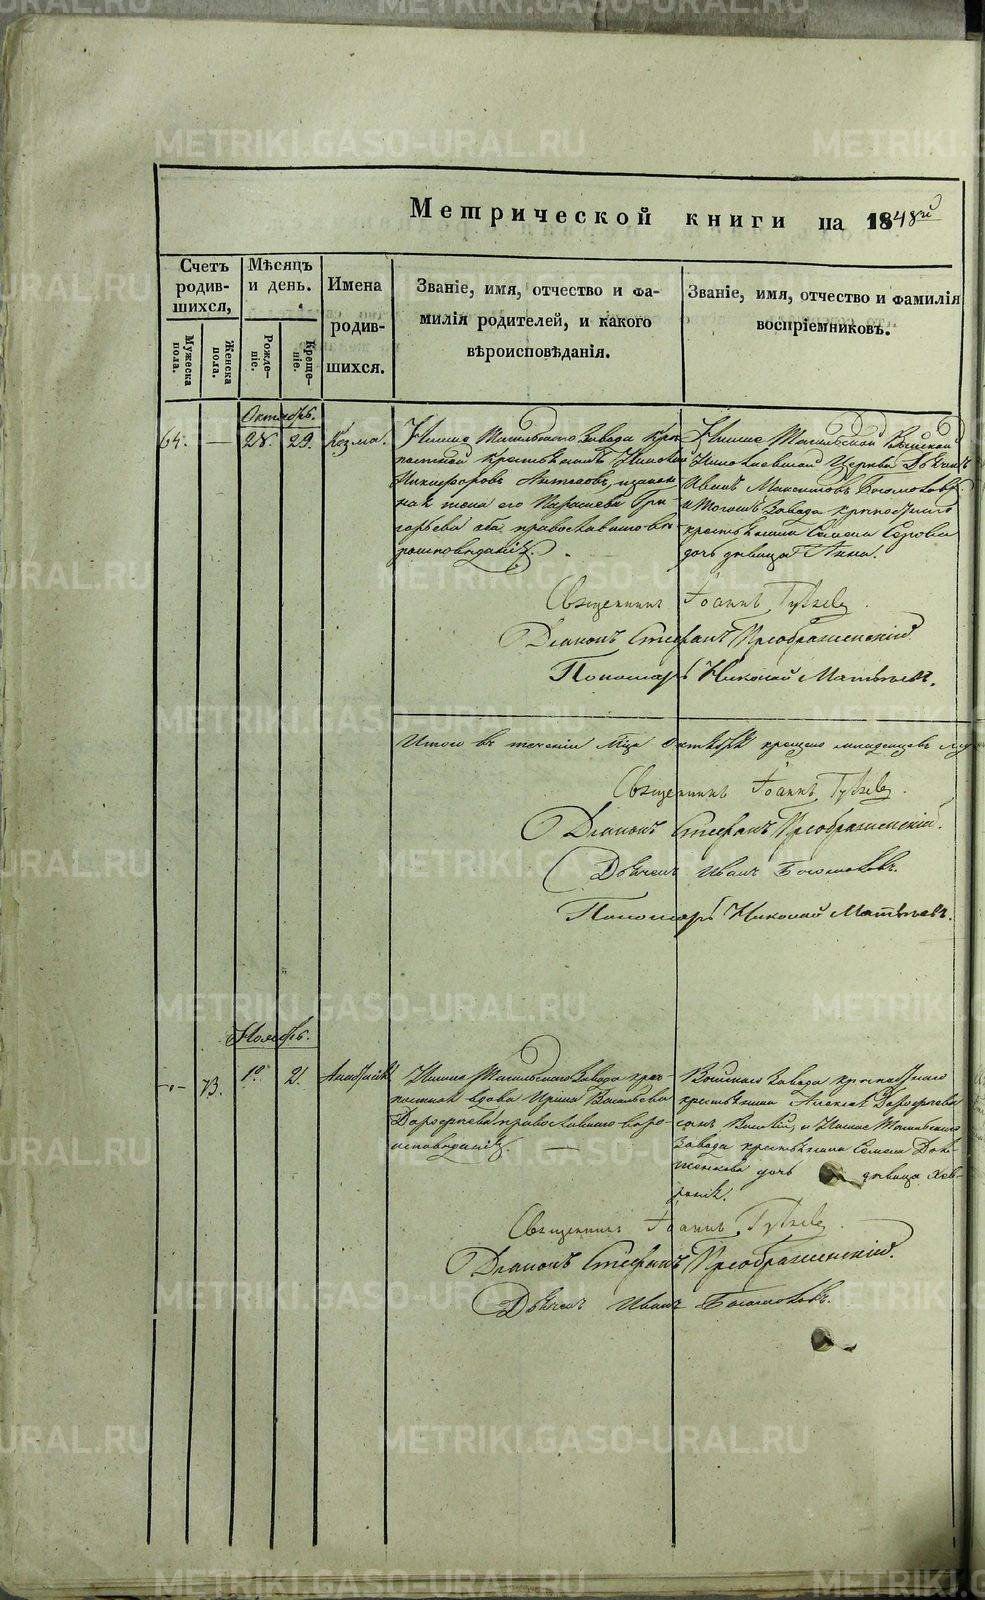 METRIKI.GASO-URAL.RU
Метрической книги на 1848й
Счетъ родив-шихся,
Мѣсяцъ и день.
Имена родив-шихся.
Званіе, имя, отчество и фа-
милія родителей, и какого
вѣроисповѣданія.
Званіе, имя, отчество и фамилія
воспріемниковъ.
Мужеска пола.
Женска пола.
Рожде-ніе.
Креще-ніе.
Октябрь.
64. — 28 29. Козма.
Нижне Тагильскаго Завода крѣ-
постной крестьянинъ
Никифоровъ закон-
ная жена его Параскева Гри-
горьева оба православнаго вѣ-
роисповѣданія.
Нижне Тагильской Выйской
Николаевской Церкви Дьячекъ
Иванъ Максимовъ Богомоловъ
и тогожъ Завода крѣпостнаго
крестьянина Семена Серова
дочь дѣвица Анна.
Священникъ Іоаннъ
Діаконъ Стефанъ Преображенскій
Пономарь Николай Матвѣевъ.
Итого въ теченіи Мца Октября крещено младенцевъ
Священникъ Іоаннъ
Діаконъ Стефанъ Преображенскій.
Дьячекъ Иванъ Богомоловъ.
Пономарь Николай Матвѣевъ.
Ноябрь.
73. 1. 2. Анастасія
Нижне Тагильскаго Завода крѣ-
постная вдова Ирина Васильева
Дорофѣева православнаго вѣро-
исповѣданія. —
Выйскаго Завода крѣпостнаго
крестьянина Алексѣя Дорофѣева
сынъ и Нижне Тагильскаго
Завода крестьянина Семена Дол-
женкова дочь дѣвица Хев-
ронія.
Священникъ Іоаннъ
Діаконъ Стефанъ Преображенскій.
Дьячекъ Иванъ Богомоловъ.